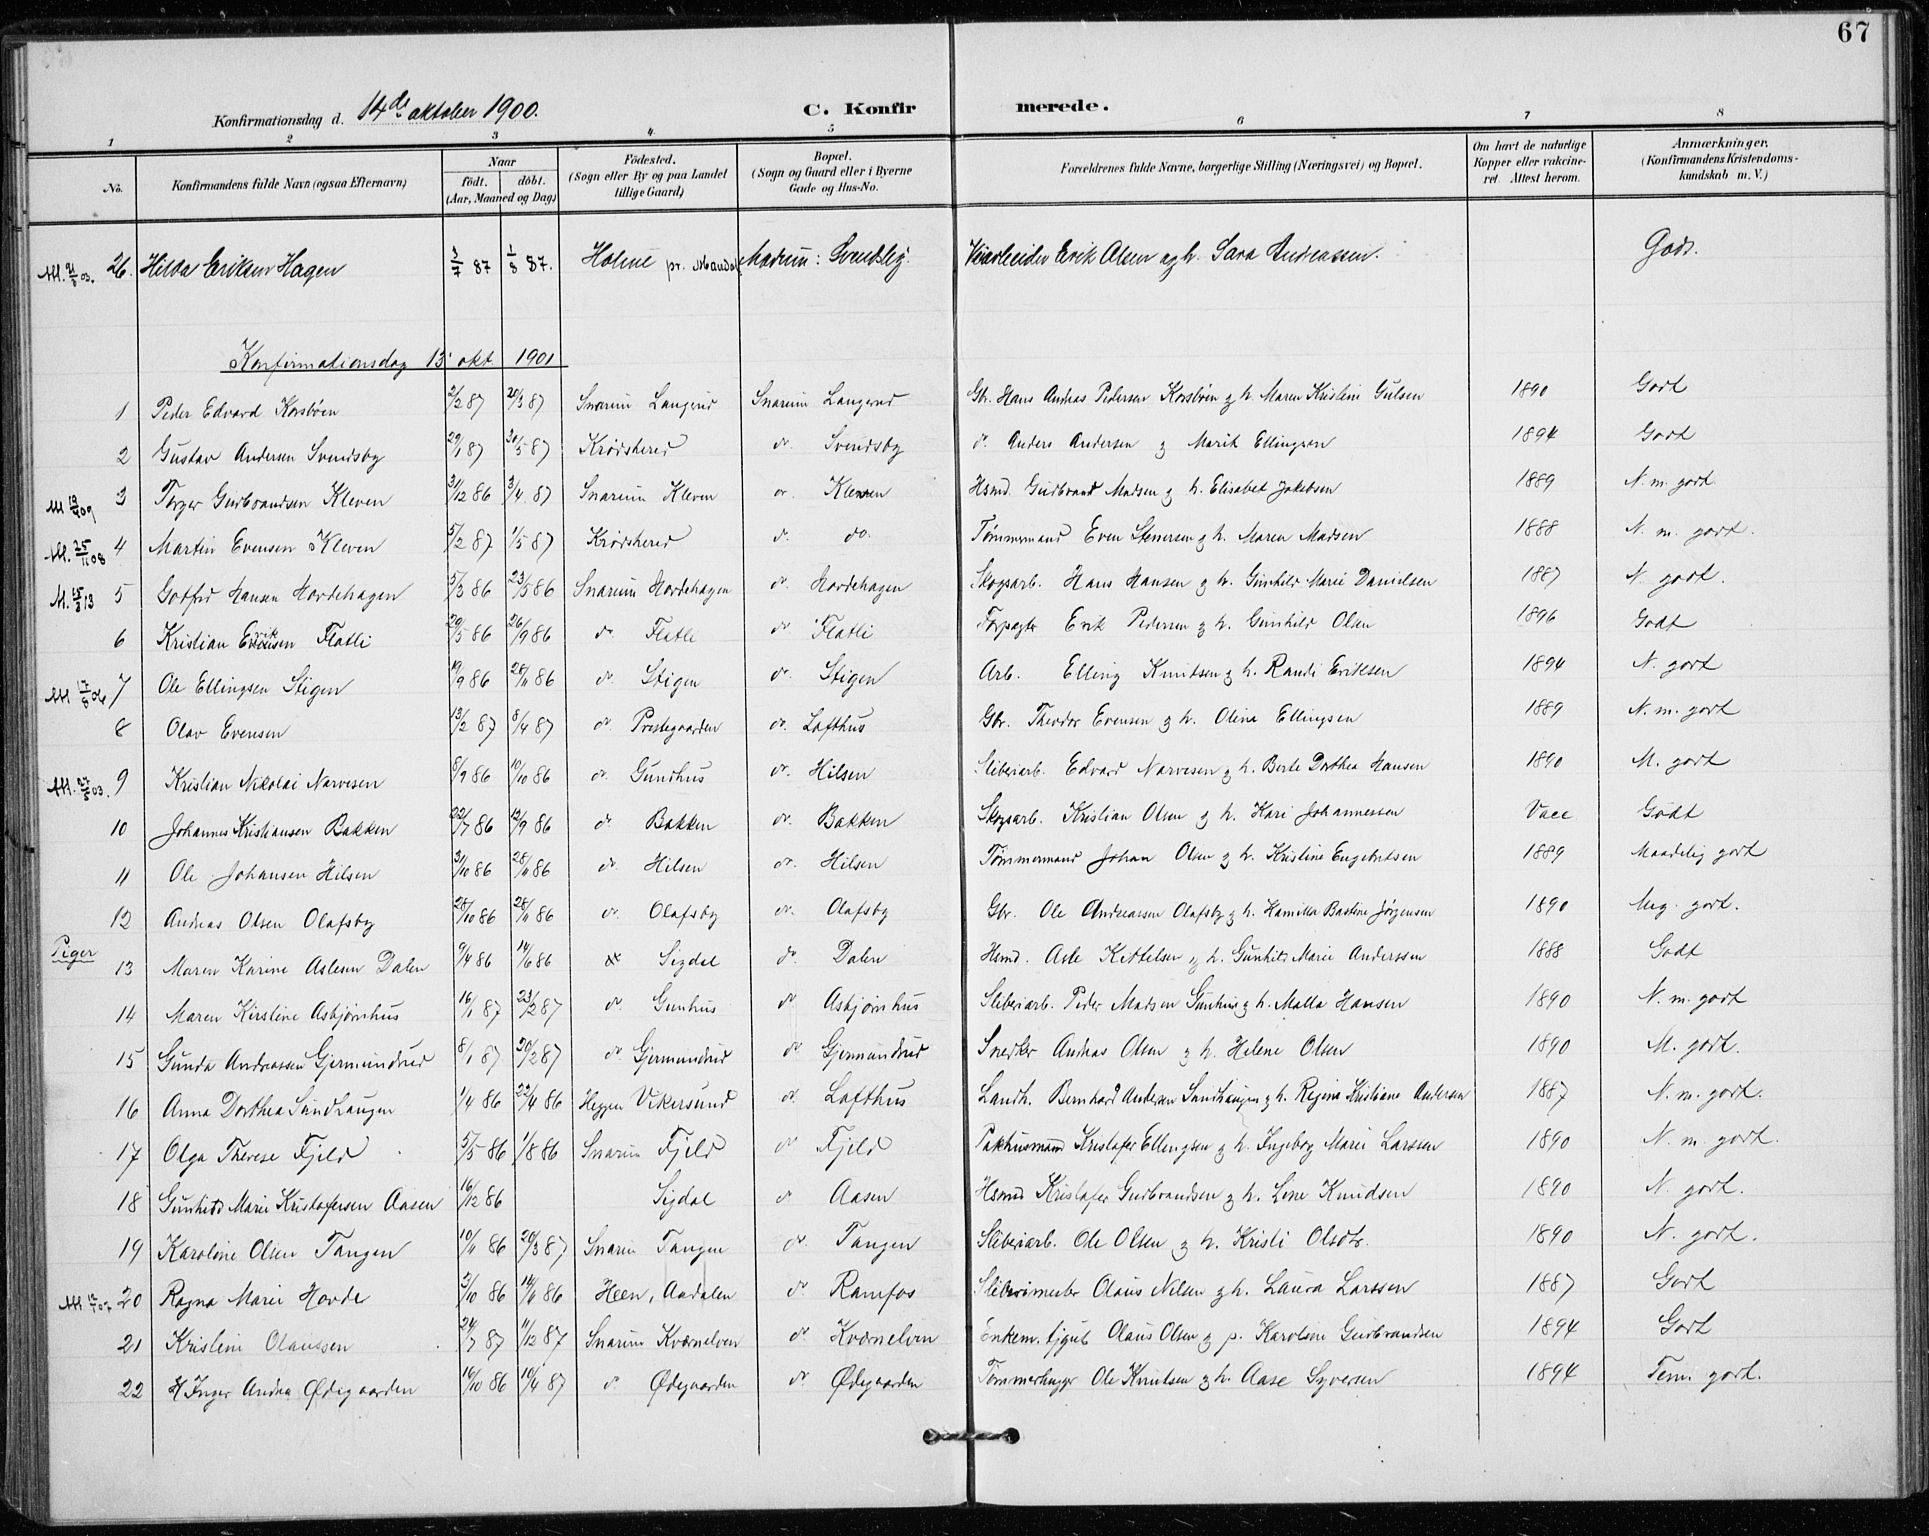 67
Konfirmationsdag d. 14de oktober 1900. C. Konfirmerede.
1 2 3 4 5 6 7 8
No. Konfirmandens fulde Navn (ogsaa Efternavn) Naar födt. döbt. (Aar, Maaned og Dag) Födested. (Sogn eller By og paa Landet tillige Gaard) Bopæl. (Sogn og Gaard eller i Byerne Gade og Hus-No. Forældrenes fulde Navne, borgerlige Stilling (Næringsvei) og Bopæl. Om havt de naturlige Kopper eller vakcineret. Attest herom. Anmærkninger. (Konfirmandens Kristendomskundskab m. V.)
26. Hilda Eriksen Hagen 3/7 87 1/8 87. Holme pr. Mandal Modum: Svendsby. Erik Olsen og h. Sara Andreassen. Godt.
Konfirmationsdag 13 okt 1901
1 Peder Edvard Korsbøen 2/2 87 20/3 87 Snarum Langerud Snarum Langerud Gbr. Hans Andreas Pedersen Korsbøen og h. Maren Kristine Gulsen 1890 Godt
2 Gustav Andersen Svendsby 29/1 87 30/5 87 Krødsherred do. Svendsby do. Anders Andersen og Marit Ellingsen 1894 Godt
3 Torger Gudbrandsen Kleven 31/12 86 3/4 87 Snarum Kleven do. Kleven Hsmd. Gudbrand Madsen og h. Elisabet Jakobsen 1889 N. m. godt
M. 25/11 08 4 Martin Evensen Kleven 5/2 87 1/5 87 Krødsherred do. do. Tømmermand Even Stenersen og h. Maren Madsen 1888 N. m. godt.
M. 15/3 13 5 Gotfred Hansen Hovdehagen 5/3 86 23/5 86 Snarum Hovdehagen do. Hovdehagen Skogsarb. Hans Hansen og h. Gunhild Marie Danielsen 1887 N. godt.
6 Kristian Eriksen Flatli 20/5 86 26/9 86 do Flatli do Flatli Forpagter Erik Pedersen og h. Gunhild Olsen 1896 Godt
7 Ole Ellingsen Stigen 19/9 86 28/11 86 do. Stigen do. Stigen Arb. Elling Knutsen og h. Randi Eriksen 1894 N. godt
8 Olav Evensen 13/2 87 8/4 87 do Prestegaarden do. Lofthus Gbr. Theodor Evensen og h. Olina Ellingsen 1889 N. m. godt
9 Kristian Nikolai Narvesen 8/9 86 10/10 86 do. Gundhus do. Hilsen Sliberiarb. Edvard Narvesen og h. Berte Dorthea Hansen 1890 M. godt
10 Johannes Kristiansen Bakken 22/7 86 12/9 86 do. Bakken do. Bakken Skogsarb. Kristian Olsen og h. Kari Johannessen Vacc Godt
11 Ole Johansen Hilsen 3/10 86 28/11 86 do. Hilsen do. Hilsen Tømmermand Johan Olsen og h. Kristine Engebretsen 1889 Maadelig godt
12 Andreas Olsen Olafsby 28/10 86 28/11 86 do. Olafsby do. Olafsby Gbr. Ole Andreassen Olafsby og h. Hamilla Bastine Jørgensen 1890 Meg. godt.
Piger
13 Maren Karine Aslesen Dalen 9/4 86 14/6 86 Sigdal do. Dalen Hsmd. Asle Kittelsen og h. Gunhild Marie Anderssen 1888 Godt
14 Maren Kirstine Asbjørnhus 16/1 87 23/2 87 do. Gunhus do Asbjørnhus Sliberiarb. Peder Madsen Gunhus og h. Malla Hansen 1890 N. m. godt
15 Gunda Andreassen Gjermundrud 8/1 87 20/2 87 do Gjermundrud do Gjermundrud Snedker Andreas Olsen og h. Helene Olsen 1890 M. godt.
16 Anna Dorthea Sundhaugen 1/4 86 22/4 86 Heggen Vikersund do. Lofthus Landh. Bernhard Andersen Sundhaugen og h. Regine Kristiane Andersen 1887 N. m. godt.
17 Olga Therese Fjeld 5/5 86 1/8 86 Snarum Fjeld do Fjeld Pakhusmand Kristofer Ellingsen og h. Ingeborg Marie Larssen 1890 N. m. godt.
18 Gunhild Marie Kristofersen Aasen 16/12 86 Sigdal do Aasen Hsmd Kristofer Gudbrandsen og h. Lene Knudsen 1890 N. godt.
19 Karoline Olsen Tangen 10/11 86 20/3 87 Snarum Tangen do. Tangen Sliberiarb. Ole Olsen og h. Kristi Olsdtr. 1890 N. godt.
20 Ragna Marie Hovde 2/10 86 14/11 86 Heen, Aadalen do Ramfos Slibermester Olaus Nilsen og h. Laura Larssen 1887 Godt
21 Kristine Olaussen 24/7 87 11/12 87 Snarum Kværnelven do. Kværnelven Enkem. Olaus Olsen og p. Karoline Gudbrandsen 1894 Godt
22 Inger Andrea Ødegaarden 16/10 86 10/4 87 do Ødegaarden do Ødegaarden Tømmerhugger Ole Knutsen og h. Aase Syversen 1894 Tem. godt.